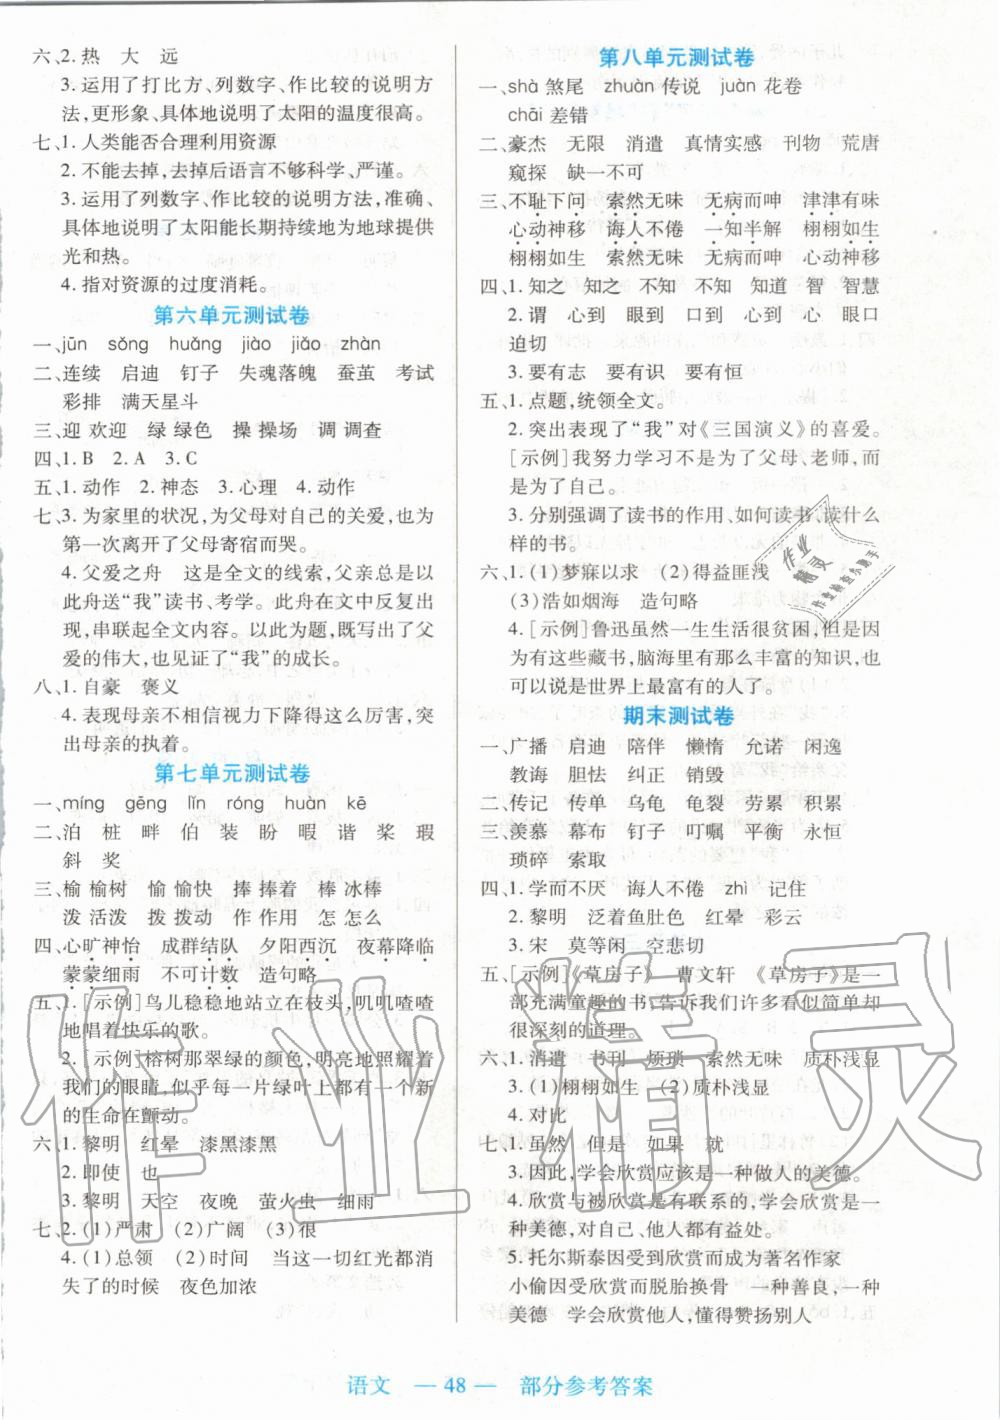 六、2. 热　大　远
3. 运用了打比方、列数字、作比较的说明方
法,更形象、具体地说明了太阳的温度很高。
七、1. 人类能否合理利用资源
2. 不能去掉,去掉后语言不够科学、严谨。
3. 运用了列数字、作比较的说明方法,准确、
具体地说明了太阳能长期持续地为地球提供
光和热。
4. 指对资源的过度消耗。
第六单元测试卷
一、jūn　sǒng　huǎng　jiào　jiǎo　zhàn
二、连续　启迪　钉子　失魂落魄　蚕茧　考试
彩排　满天星斗
三、迎 欢迎　绿 绿色　操 操场　调 调查
四、1. B　2. A　3. C
五、1. 动作　2. 神态　3. 心理　4. 动作
七、3. 为家里的状况,为父母对自己的关爱,也为
第一次离开了父母寄宿而哭。
4. 父爱之舟　这是全文的线索,父亲总是以
此舟送“我”读书、考学。此舟在文中反复出
现,串联起全文内容。以此为题,既写出了父
爱的伟大,也见证了“我”的成长。
八、1. 自豪　褒义
4. 表现母亲不相信视力下降得这么厉害,突
出母亲的执着。
第七单元测试卷
一、míng　gēng　lǐn　róng　huàn　kē
二、泊　桩　畔　伯　装　盼　暇　谐　桨　瑕
斜　奖
三、榆 榆树　愉 愉快　捧 捧着　棒 冰棒
泼 活泼　拨 拨动　作 作用　怎 怎么
四、心旷神怡　成群结队　夕阳西沉　夜幕降临
蒙蒙细雨　不可计数　造句略
五、1. [示例]鸟儿稳稳地站立在枝头,叽叽喳喳
地唱着快乐的歌。
2. [示例]榕树那翠绿的颜色,明亮地照耀着
我们的眼睛,似乎每一片绿叶上都有一个新
的生命在颤动。
六、1. 黎明　红晕　漆黑漆黑
2. 即使　也
3. 黎明　天空　夜晚　萤火虫　细雨
七、2. (1)严肃　(2)广阔　(3)很
4. (1)总领　(2)时间　当这一切红光都消
失了的时候　夜色加浓
第八单元测试卷
一、shà 煞尾　zhuàn 传说　juàn 花卷
chāi 差错
二、豪杰　无限　消遣　真情实感　刊物　荒唐
窥探　缺一不可
三、不耻下问　索然无味　无病而呻　津津有味
心动神移　诲人不倦　一知半解　栩栩如生
栩栩如生　索然无味　无病而呻　心动神移
四、1. 知之　知之　不知　不知　知道　智　智慧
2. 谓　心到　眼到　口到　心到　心　眼　口
迫切
3. 要有志　要有识　要有恒
五、1. 点题,统领全文。
2. 突出表现了“我”对《三国演义》的喜爱。
[示例]我努力学习不是为了父母、老师,而
是为了自己。
3. 分别强调了读书的作用、如何读书、读什么
样的书。
六、1. (1)梦寐以求　(2)得益匪浅
(3)浩如烟海　造句略
4. [示例]鲁迅虽然一生生活很贫困,但是因
为有这些藏书,脑海里有那么丰富的知识,也
可以说是世界上最富有的人了。
期末测试卷
一、广播　启迪　陪伴　懒惰　允诺　闲逸
教诲　胆怯　纠正　销毁
二、传记　传单　乌龟　龟裂　劳累　积累
三、羡慕　幕布　钉子　叮嘱　平衡　永恒
琐碎　索取
四、1. 学而不厌　诲人不倦　zhì　记住
2. 黎明　泛着鱼肚色　红晕　彩云
3. 宋　莫等闲　空悲切
五、[示例]《草房子》　曹文轩　《草房子》是一
部充满童趣的书,告诉我们许多看似简单却
很深刻的道理。
六、1. 消遣　书刊　烦琐　索然无味　质朴浅显
3. (1)栩栩如生　(2)质朴浅显
4. 对比
七、1. 虽然　但是　如果　就
3. 因此,学会欣赏应该是一种做人的美德。
4. 欣赏与被欣赏是有联系的,学会欣赏是一
种美德,对自己、他人都有益处。
5. 托尔斯泰因受到欣赏而成为著名作家
小偷因受欣赏而脱胎换骨　一种善良,一种
美德　学会欣赏他人,懂得赞扬别人
作业精灵
作业精灵
作业检查小助手
语文　— 48 —　部分参考答案